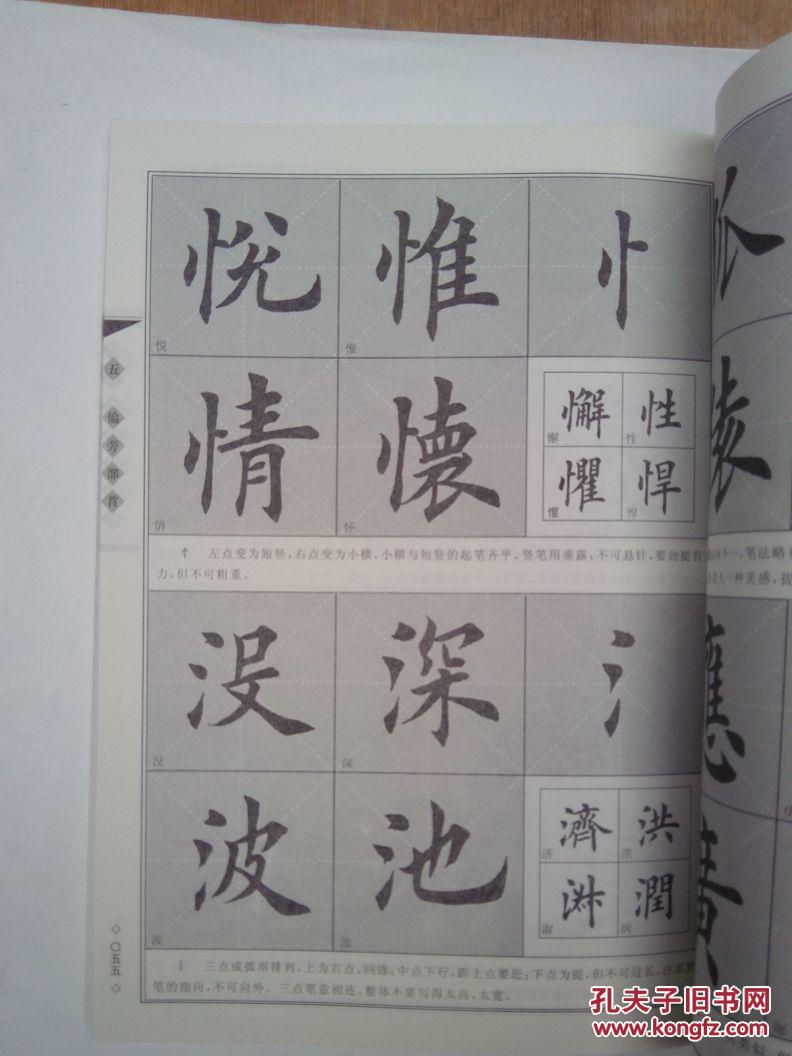 悦 惟 忄
悦 惟
情 懷
情 怀
懈 性
懈 性
懼 悍
惧 悍
忄 左点变为短竖，右点变为小横。小横与短竖的起笔齐平。竖笔用垂露，不可悬针，要劲挺有
力，但不可粗重。
没 深 氵
没 深
波 池
波 池
濟 洪
济 洪
淑 潤
淑 润
氵 三点成弧形排列，上为右点，回锋；中点下行，距上点要近；下点为提，但不可过长，注意
笔的指向，不可向外。三点笔意相连，整体不要写得太高、太宽。
五 偏旁部首
◇〇五五◇
不一，笔法略
人一种美感，提
應
孔夫子旧书网
www.kongfz.com